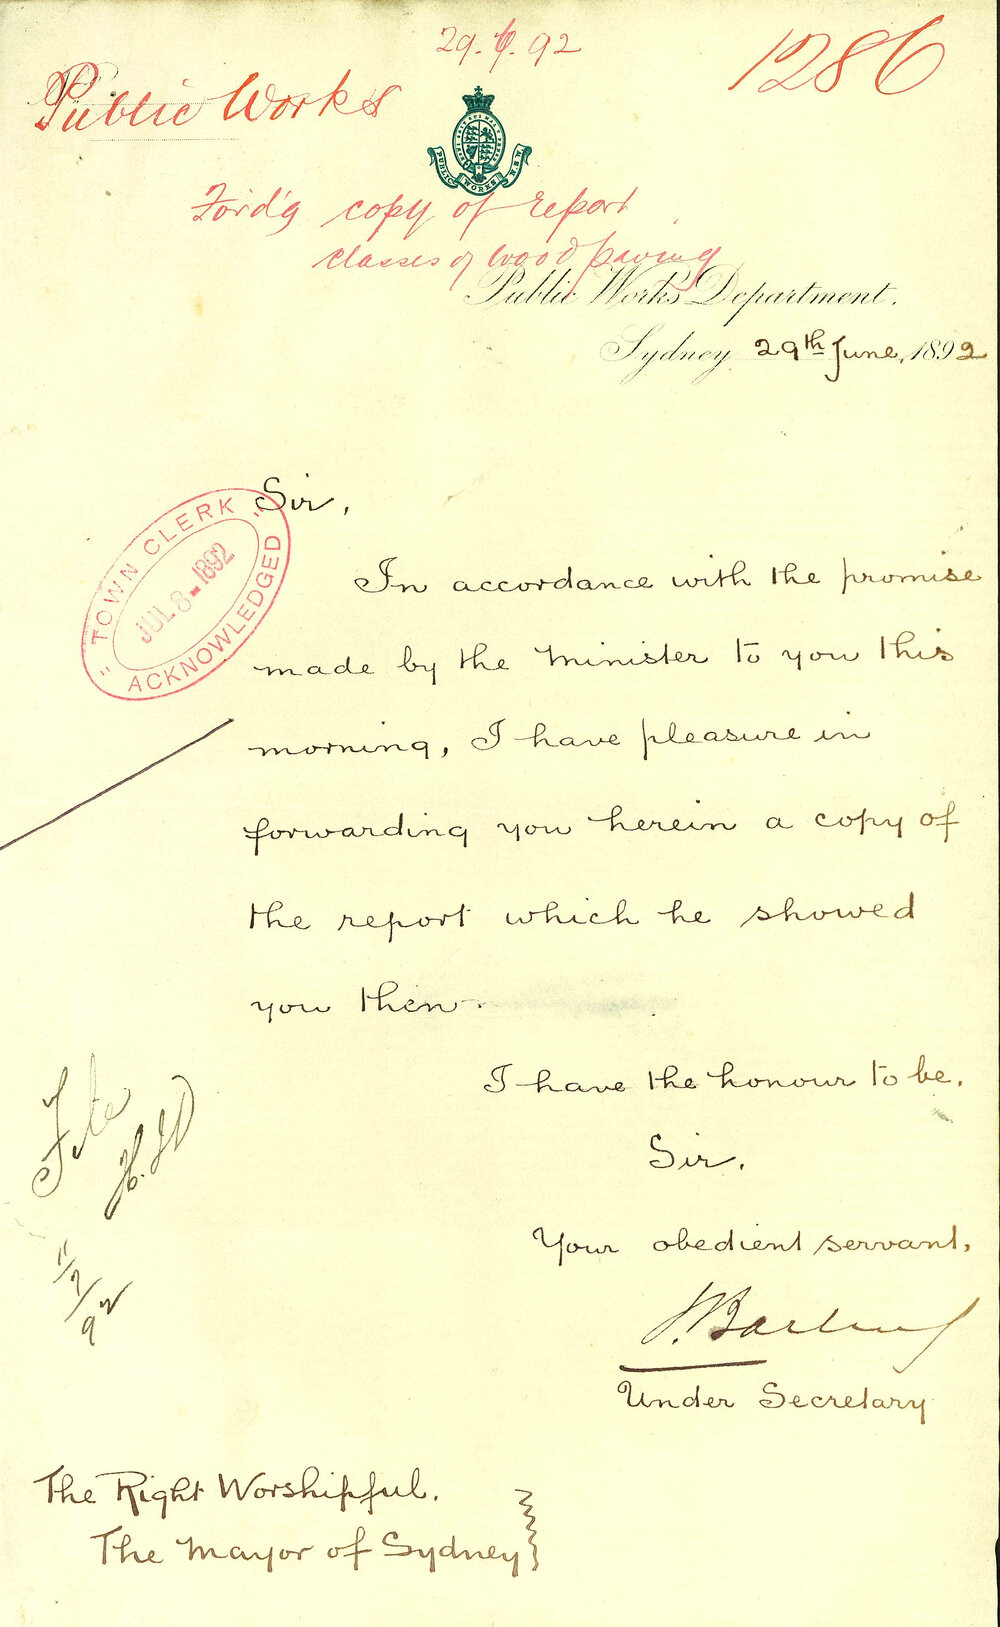 29.6.92
1286
Public Works
PUBLIC WORKS N.S.W.
Ford'g copy of report
classes of wood paving
Public Works Department.
Sydney 29th June, 1892
Sir,
"TOWN CLERK"
JUL 8-1892
ACKNOWLEDGED
In accordance with the promise
made by the Minister to you this
morning, I have pleasure in
forwarding you herein a copy of
the report which he showed
you then.
I have the honour to be.
Sir.
Your obedient servant,
J. Barling
Under Secretary
File
11/7/92
The Right Worshipful.
The Mayor of Sydney